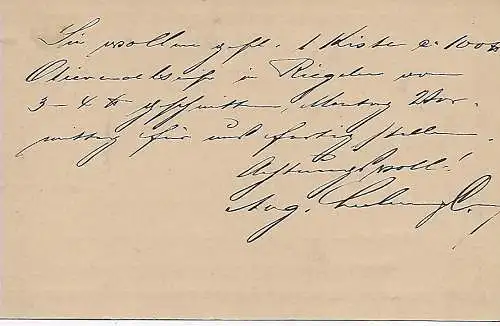 Sie wollen gefl. 1 Kiste a 100 ℔
in Riegeln von
3-4 ℔ geschnitten, Montag Vor-
mittag für uns fertig stellen.
Achtungsvoll!
Aug.